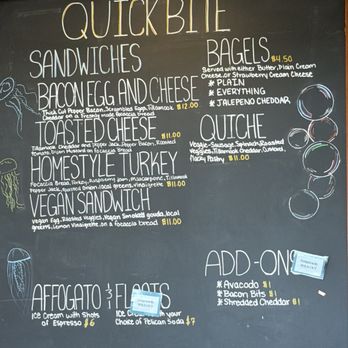 QUICK BITE
SANDWICHES
BACON EGG AND CHEESE
Thick Cut Pepper Bacon, Scrambled Eggs, Tillamook
Cheddar on a Freshly made focaccia bread $12.00
TOASTED CHEESE $11.00
Tillamook Cheddar and Pepper Jack, Pepper Bacon, Roasted
tomato, Dijon Mustard on Focaccia Bread
HOMESTYLE TURKEY
Focaccia Bread, Turkey, Raspberry jam, mascarpone, Tillamook
Pepper Jack, onions local greens, vinaigrette $11.00
VEGAN SANDWICH
Vegan Egg, Roasted Veggies, Vegan Smoked gouda, local
greens, Lemon Vinaigrette on a focaccia bread $11.00
AFFOGATO & FLOATS
Ice Cream with Shots
of Espresso $6
Ice Cream with your
Choice of Pelican Soda $7
BAGELS $4.50
Served with either Butter, Plain Cream
Cheese, or Strawberry Cream Cheese
* PLAIN
* EVERYTHING
* JALEPENO CHEDDAR
QUICHE
Veggie-Sausage, Spinach, Roasted
Veggies, Tillamook Cheddar, Onions,
Flaky Pastry $11.00
ADD-ONS
* Avacado $1
* Bacon Bits $1
* Shredded Cheddar $1